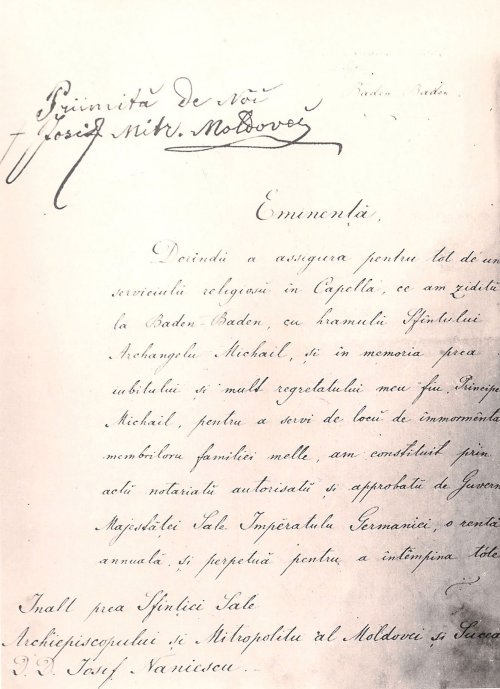 Baden Baden.
Priimită de Noi
† Iosif Mitr. Moldovei
Eminență,
Dorindŭ a assigura pentru tot de un
serviciulŭ religiosŭ in Capella, ce am ziditŭ
la Baden-Baden, cu hramulŭ Sfintului
Archangelu Michail, și in memoria prea
iubitului și mult regretatului meu fiu, Principe
Michail, pentru a servi de locŭ de immormênta
membriloru familiei melle, am constituit prin
actŭ notariatŭ autorisatŭ si approbatŭ de Guvern
Majestăței Sale Impĕratulu Germaniei, o rentă
annuală, și perpetuă pentru a intêmpina tôte
Inalt prea Sfinției Sale
Archiepiscopului și Mitropolitu al Moldovei și Sucea
D. D. Iosif Naniescu